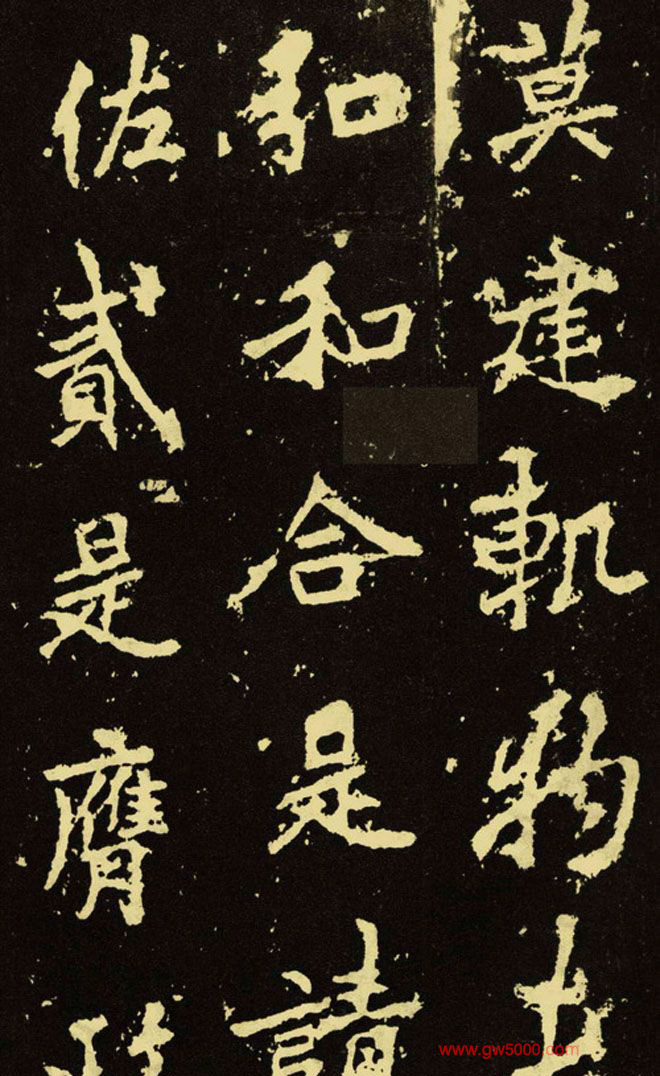 莫建軌物
和合是請
佐貳是膺
www.gw5000.com